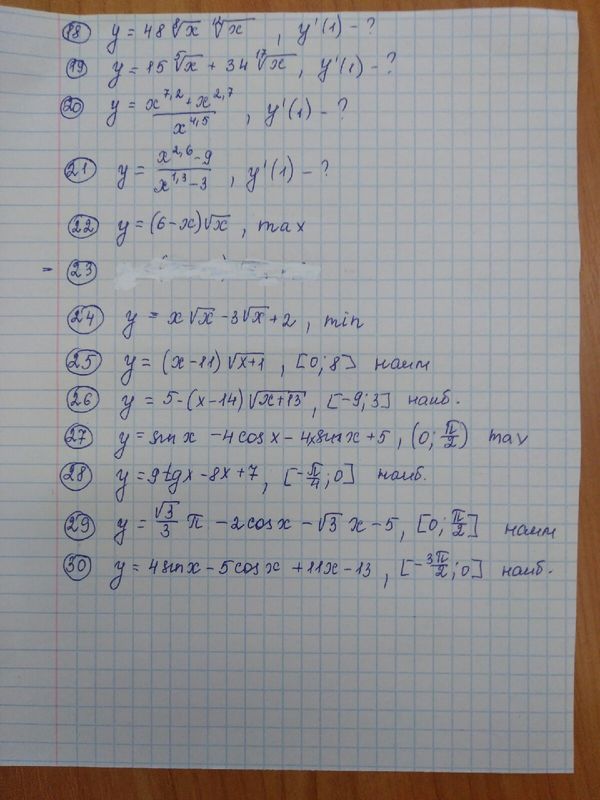 18 y = 48 ⁸√x ¹²√x , y'(1) - ?
19 y = 15 ⁵√x + 34 ¹⁷√x , y'(1) - ?
20 y = (x^7,2 + x^2,7)/x^4,5 , y'(1) - ?
21 y = (x^2,6 - 9)/(x^1,3 - 3) , y'(1) - ?
22 y = (6 - x)√x , max
- 23
24 y = x√x - 3√x + 2 , min
25 y = (x - 11)√x+1 , [0; 8] наим
26 y = 5 - (x - 14)√x+13 , [-9; 3] наиб.
27 y = sin x - 4cos x - 4x sin x + 5 , (0; π/2) max
28 y = 9tg x - 8x + 7 , [-π/4; 0] наиб.
29 y = √3/3 π - 2cos x - √3 x - 5 , [0; π/2] наим
30 y = 4sin x - 5cos x + 11x - 13 , [-3π/2; 0] наиб.